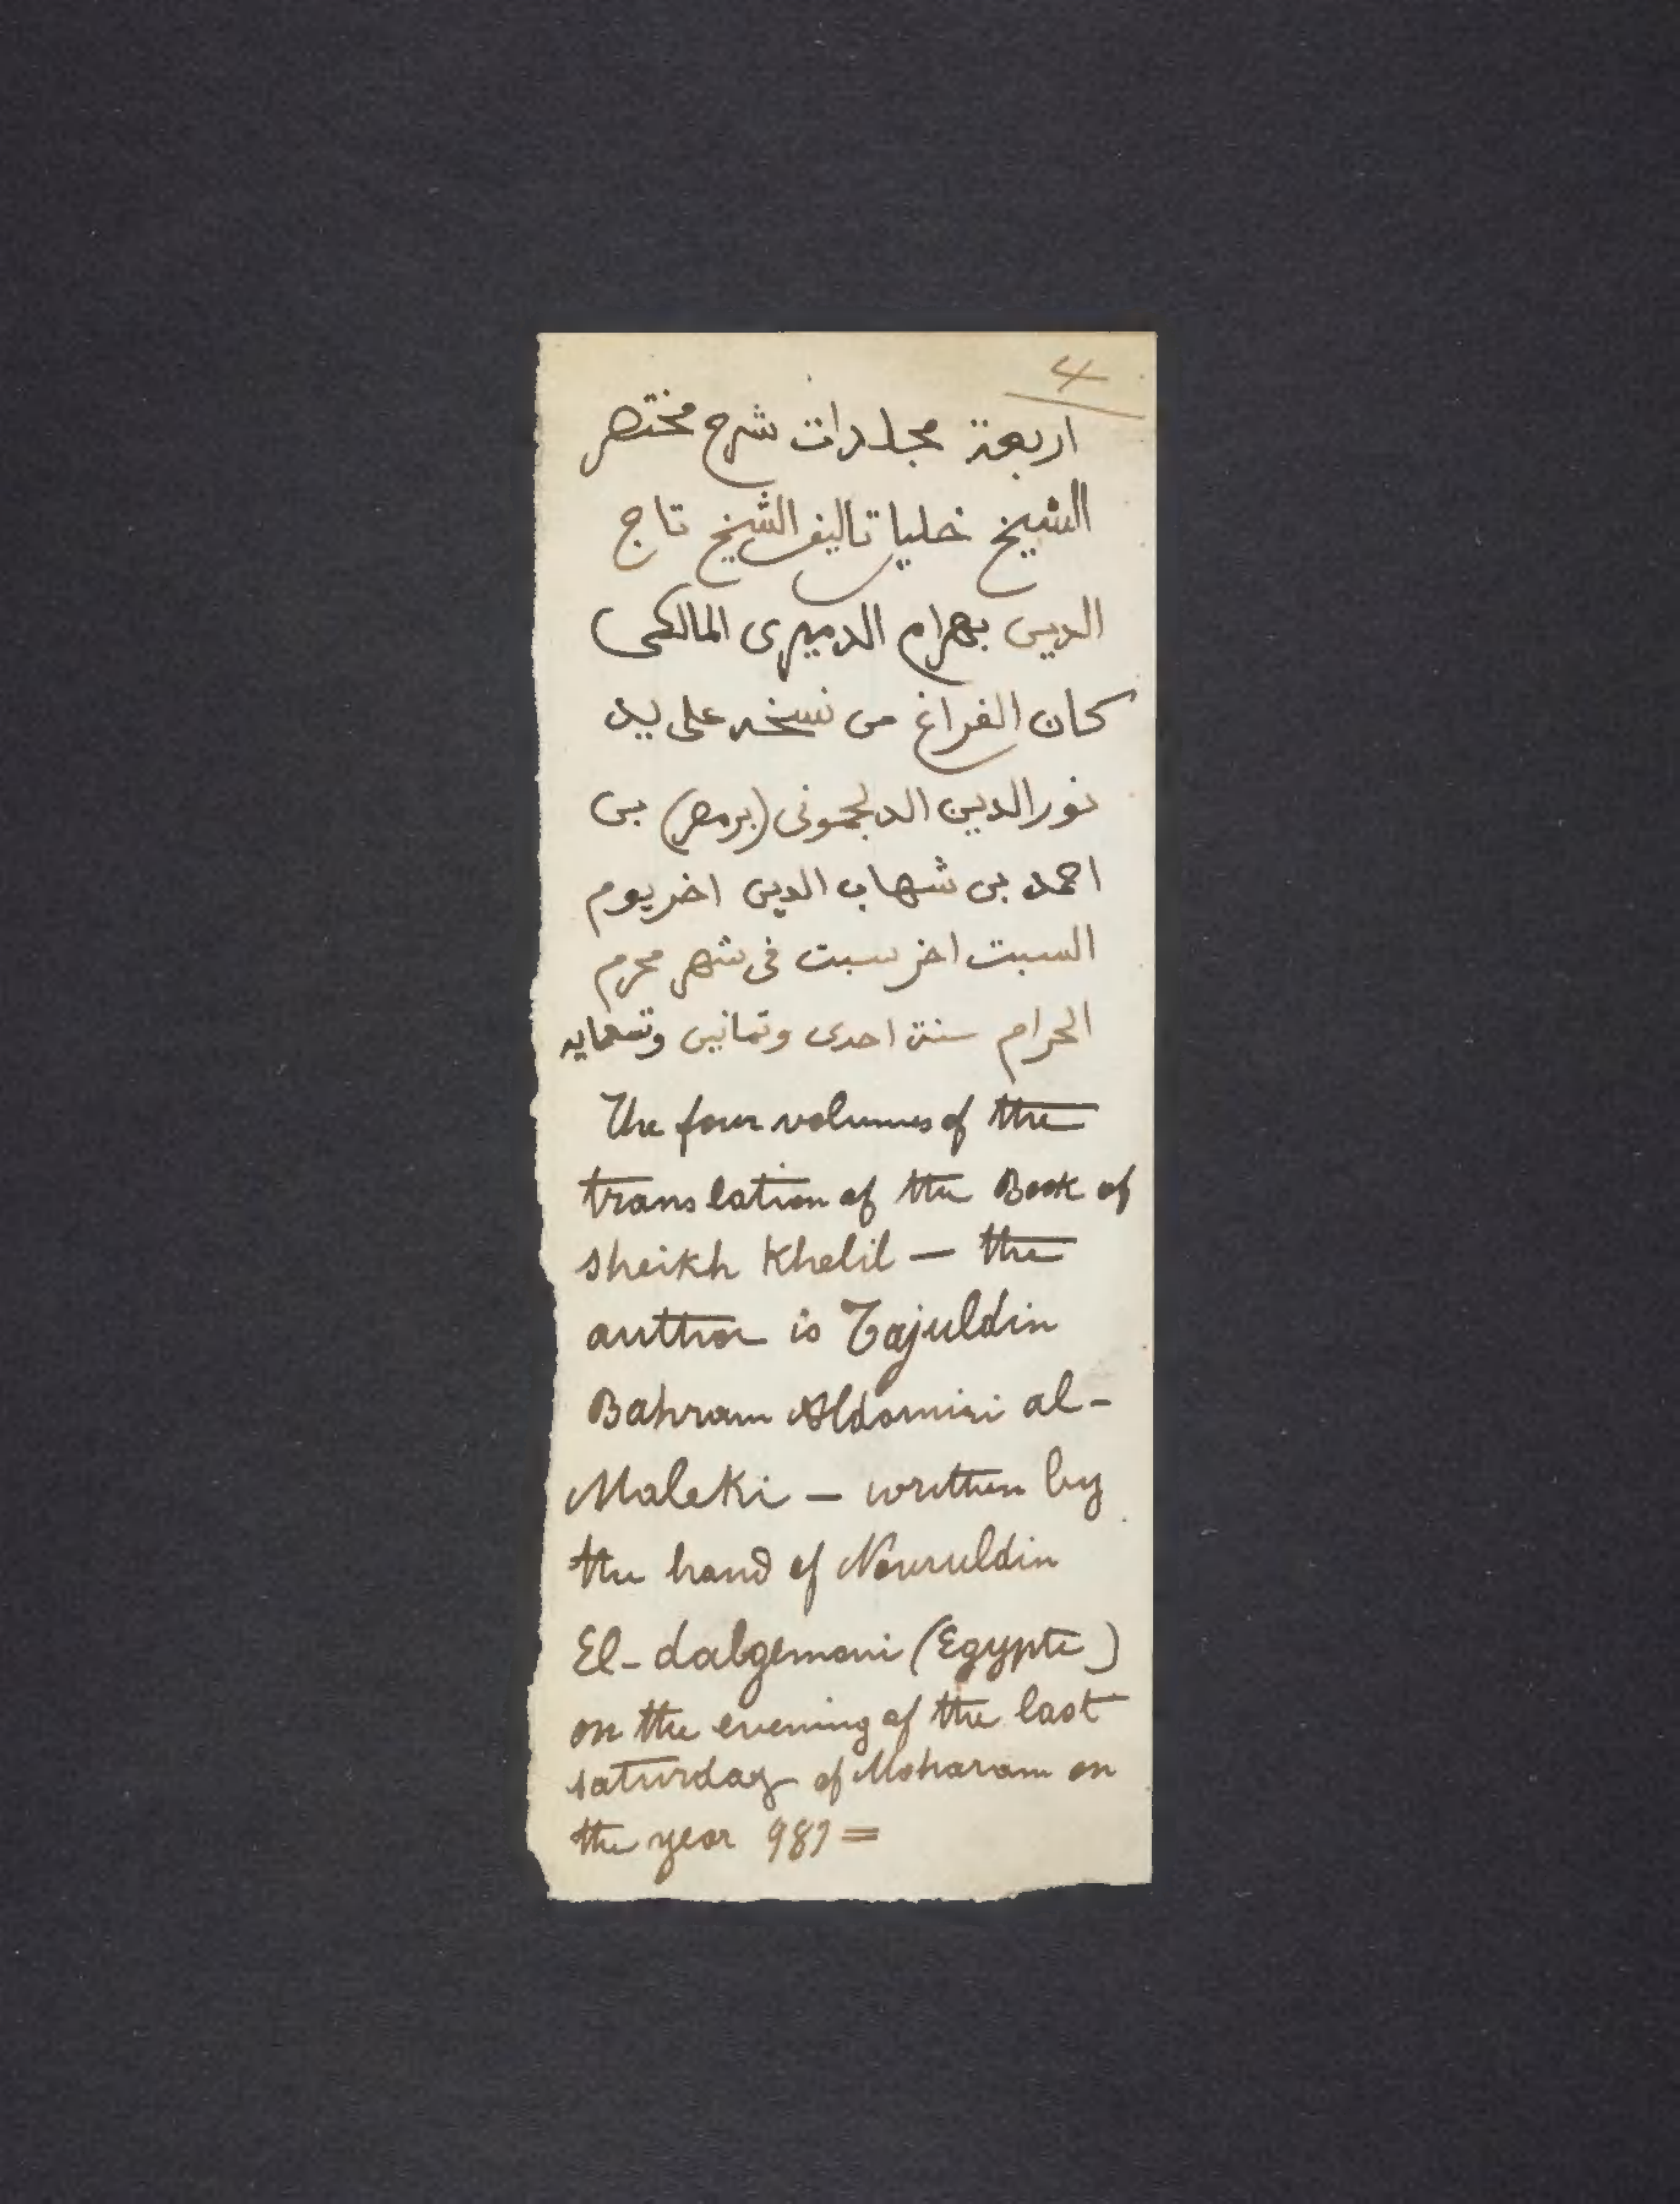 4
اربعة مجلدات شرح مختصر
الشيخ خليل تاليف الشيخ تاج
الدين بهرام الدميرى المالكى
كان الفراغ من نسخه على يد
نور الدين الدلجمونى (بر مصر) بن
احمد بن شهاب الدين اخر يوم
السبت اخر سبت فى شهر محرم
الحرام سنة احدى وثمانين وتسعمايه
The four volumes of the
translation of the Book of
sheikh Khelil — the
author is Tajuldin
Bahram Aldomiri al-
Maleki — written by
the hand of Nouruldin
El-dalgemoni (Egypte)
on the evening of the last
saturday of Moharam on
the year 981 =